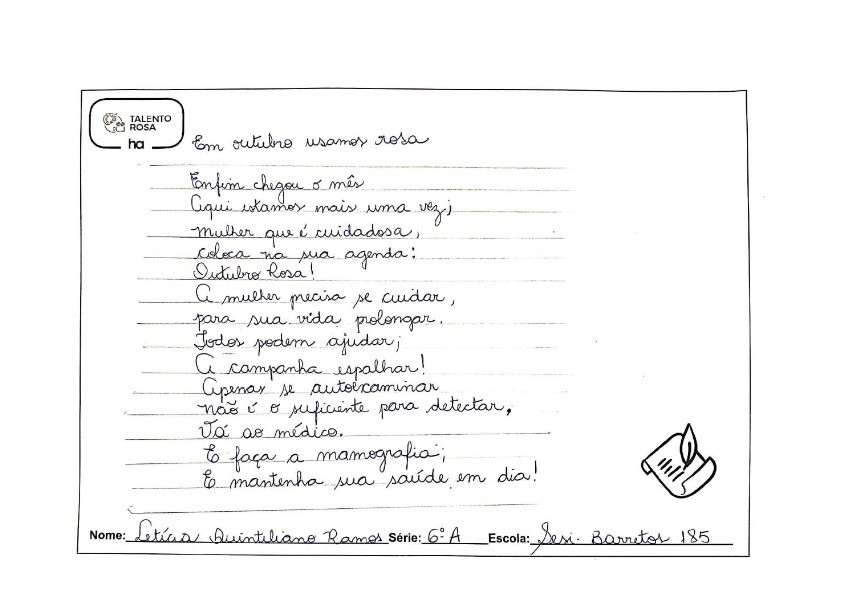 TALENTO
ROSA
ha
Em outubro usamos rosa
Enfim chegou o mês
Aqui estamos mais uma vez;
mulher que é cuidadosa,
coloca na sua agenda:
Outubro Rosa!
A mulher precisa se cuidar,
para sua vida prolongar.
Todos podem ajudar;
A campanha espalhar!
Apenas se autoexaminar
não é o suficiente para detectar,
Vá ao médico.
E faça a mamografia;
E mantenha sua saúde em dia!
Nome: Letícia Quintiliano Ramos Série: 6º A Escola: Sesi. Barretos 185